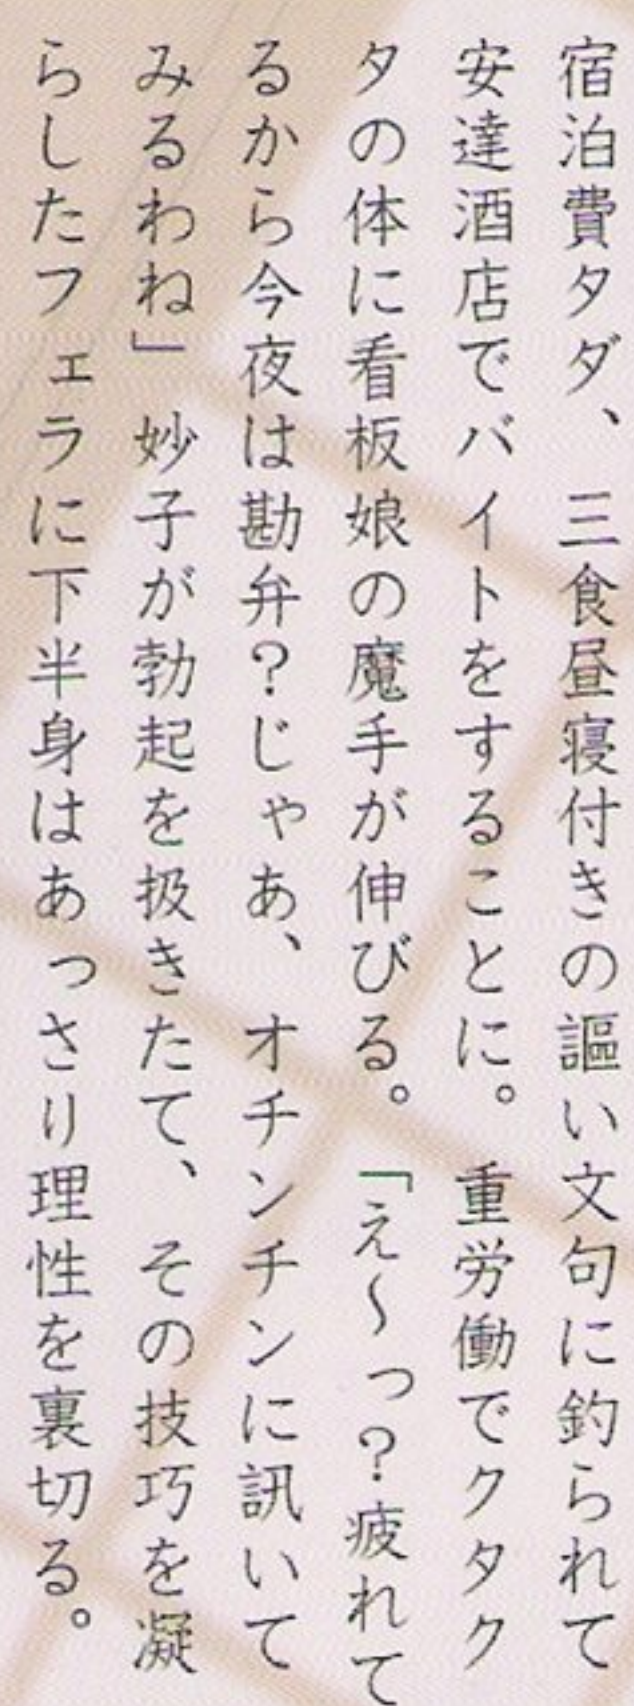 宿泊費タダ、三食昼寝付きの謳い文句に釣られて
安達酒店でバイトをすることに。重労働でクタク
タの体に看板娘の魔手が伸びる。「え～っ？疲れて
るから今夜は勘弁？じゃあ、オチンチンに訊いて
みるわね」妙子が勃起を扱きたて、その技巧を凝
らしたフェラに下半身はあっさり理性を裏切る。